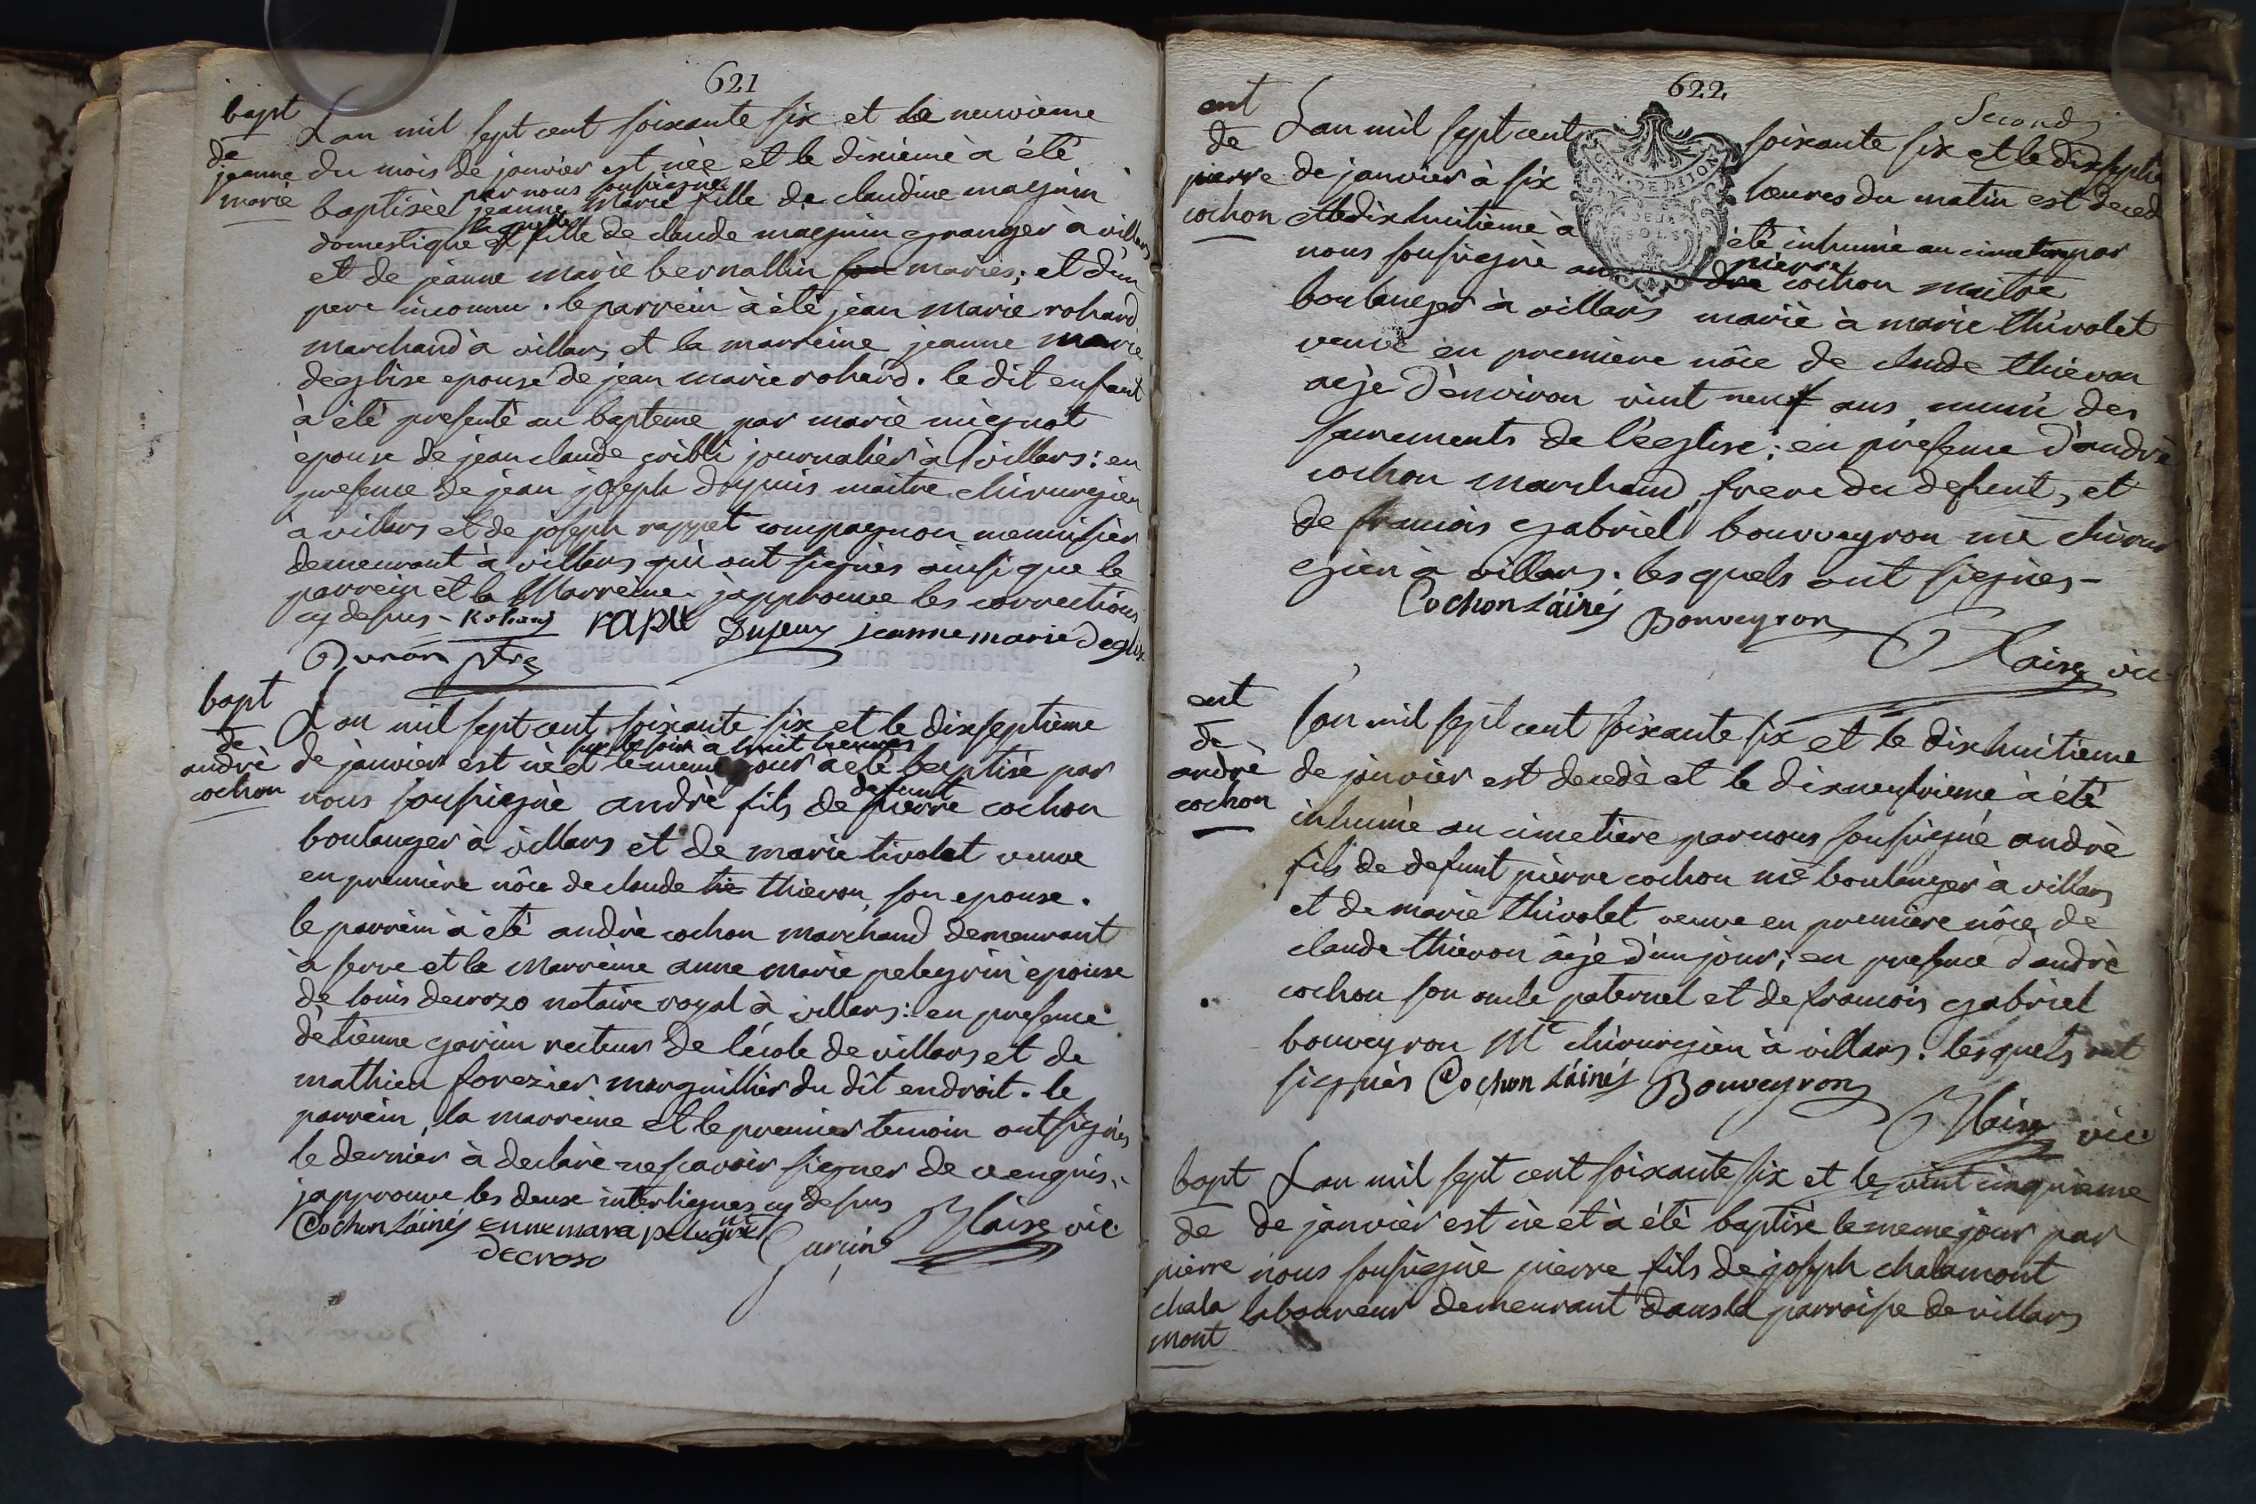 621
bapt
de
jeanne
marie
L'an mil sept cent soixante six et le neuvième
du mois de janvier est née et le dixième à été
par nous soussigné
baptisée jeanne Marie fille de claudine maguin
la quelle
domestique et fille de claude maguin granger à villars
et de jeanne marie bernallin son mariés; et d'un
pere inconnu. le parrein à été jean marie rohard
marchand à villars et la marreine jeanne marie
déglise epouse de jean marie rohard. le dit enfant
à été presenté au bapteme par marie mignot
épouse de jean claude gribli journalier à villars: en
presence de jean joseph dujuis maitre chirurgien
à villars et de joseph rappet compagnon menuisier
demeurant à villars qui ont signés ainsi que le
parrein et la Marreine. j'approuve les corrections
cy dessus - Rohard rapet jeanne marie deglise
ptre
bapt
de
andrè
cochon
L'an mil sept cent soixante six et le dixseptième
sur le soir à huit heures
de janvier est né et le meme jour à été baptisé par
defunt
nous soussigné andrè fils de pierre cochon
boulanger à villars et de marie tivolet veuve
en première nôce de claude tie thievon son epouse.
le parrein à été andrè cochon marchand demeurant
à serve et la Marreine anne marie pelegrin epouse
de louis decrozo notaire royal à villars: en presence
d'etienne garin recteur de l'école de villars et de
mathieu forezier marguillier du dit endroit. le
parrein, la marreine et le premier temoin ont signés
le dernier à declaré ne scavoir signer de ce enquis.
j'approuve les deux interlignes cy dessus
Cochon L'áinés ennemarie pelegrin Garin Blaise vic.
decroso
622
Second
ent
de
pierre
cochon
L'an mil sept cent soixante six et le dixseptie
de janvier à six heures du matin est deced
et le dixhuitième à été inhumé au cimetiere par
pierre
nous soussigné andre cochon maitre
boulanger à villars marié à marie thivolet
veuve en premiere nôce de claude thievon
agé d'environ vint neuf ans muni des
sacrements de l'eglise; en presence d'andrè
cochon marchand frere du defunt, et
de francois gabriel bouveyron mè chirur
gien à villars. les quels ont signés -
Cochon L'áinés Bouveyron
Blaise vic
ent
de
andrè
cochon
L'an mil sept cent soixante six et le dixhuitième
de janvier est decedè et le dixneufvieme à été
inhumé au cimetiere par nous soussigné andrè
fils de defunt pierre cochon mè boulanger à villars
et de marie thivolet veuve en première nôce de
claude thievon agé d'un jour; en presence d'andrè
cochon son oncle paternel et de francois gabriel
bouveyron Me chirurgien à villars. lesquels ont
signés Cochon L'áinés Bouveyron
Blaise vic.
bapt
de
pierre
chala
mont
L'an mil sept cent soixante six et le vint cinquieme
de janvier est né et à été baptisé le meme jour par
nous soussigné pierre fils de joseph chalamont
laboureur demeurant dans la parroisse de villars